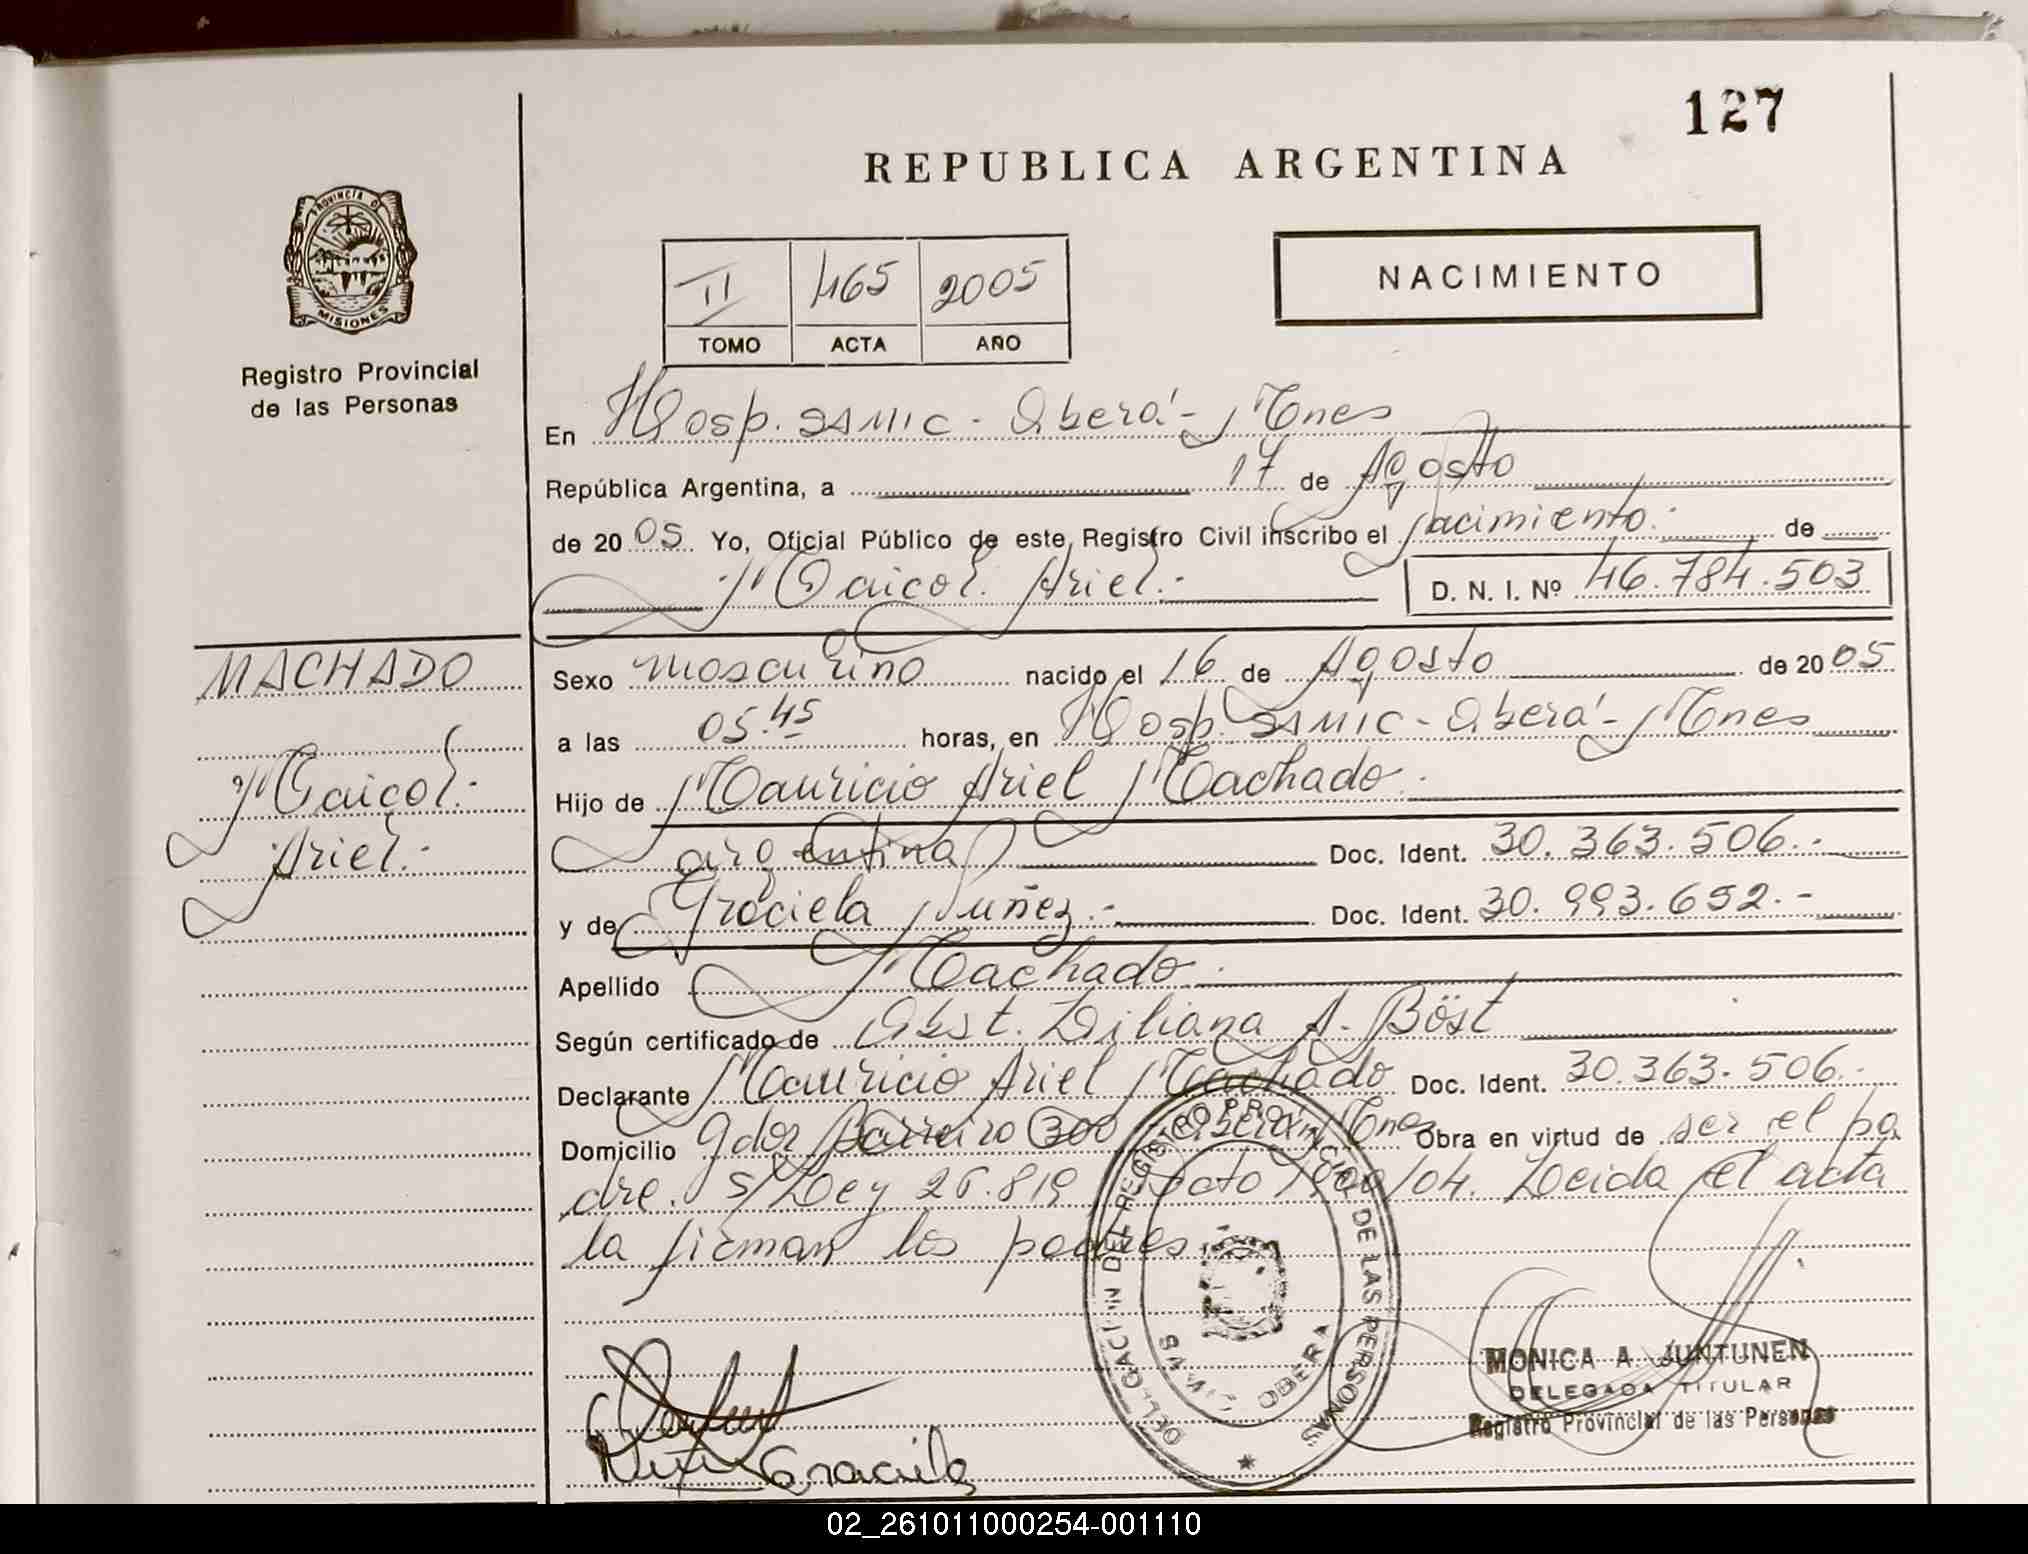 127
REPUBLICA ARGENTINA
PROVINCIA D
MISIONES
Registro Provincial
de las Personas
NACIMIENTO
II 465 2005
TOMO ACTA AÑO
En Hosp. SAMIC - Oberá - Mnes
República Argentina, a 17 de Agosto
de 2005 Yo, Oficial Público de este Registro Civil inscribo el nacimiento.- de
Maicol Ariel.- D. N. I. Nº 46.784.503
MACHADO
Maicol
Ariel.-
Sexo masculino nacido el 16 de Agosto de 2005
a las 05.45 horas, en Hosp. SAMIC - Oberá - Mnes
Hijo de Mauricio Ariel Machado.
argentina Doc. Ident. 30.363.506.-
y de Graciela Nuñez.- Doc. Ident. 30.993.652.-
Apellido Machado.
Según certificado de Obst. Liliana A. Böst
Declarante Mauricio Ariel Machado Doc. Ident. 30.363.506.-
Domicilio Gdor Barreiro 300 - Oberá Mnes Obra en virtud de ser el pa
dre. s/Ley 26.819 /04. Leida el acta
la firman los padres
DELEGACION DEL REGISTRO PROVINCIAL DE LAS PERSONAS
SAMIC OBERA
Graciela
MONICA A. JUNTUNEN
DELEGADA TITULAR
Registro Provincial de las Personas
02_261011000254-001110